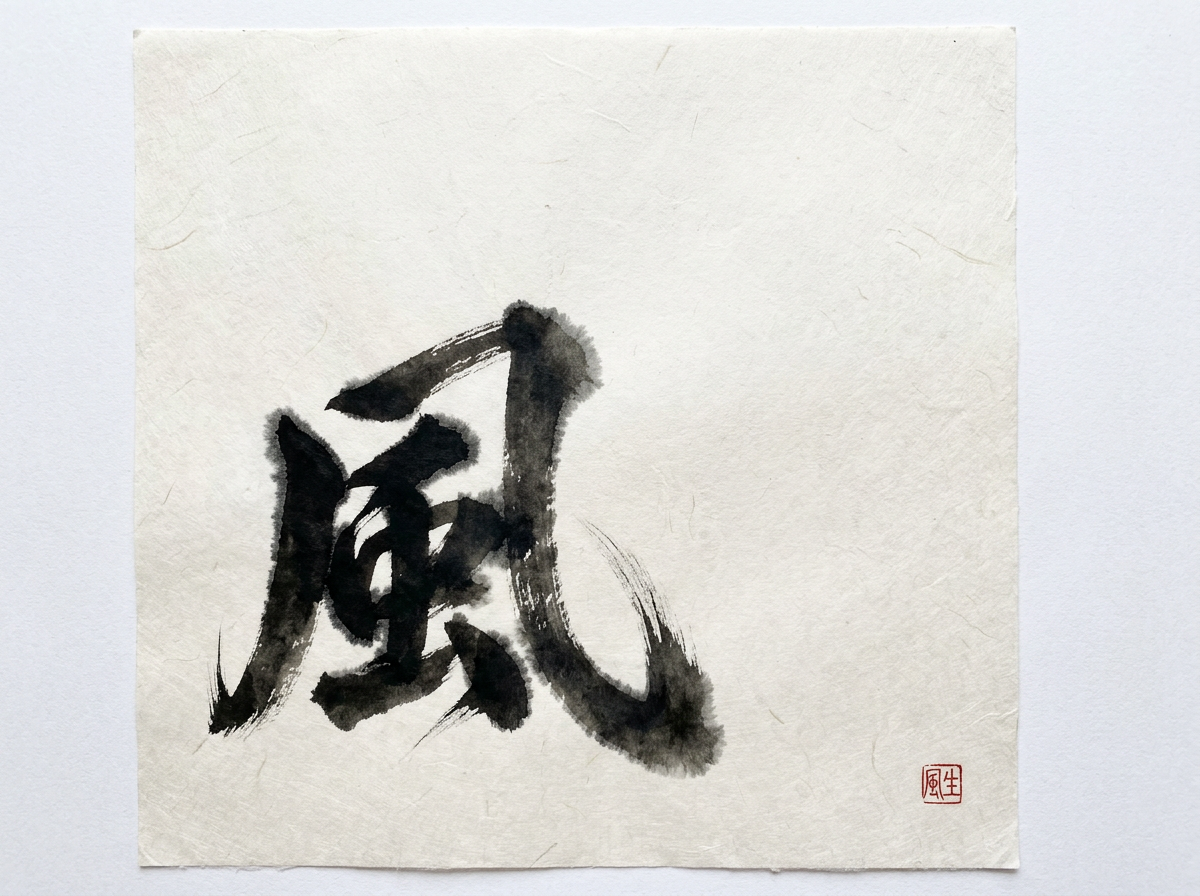 風
生風